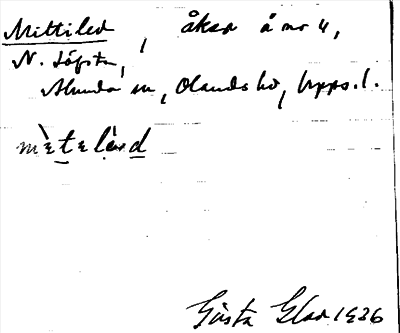 Mittiled, åker å nr 4,
N. Löfsta,
Alunda sn, Olands hd, Upps. l.
mètelèd
Gösta Glad 1926